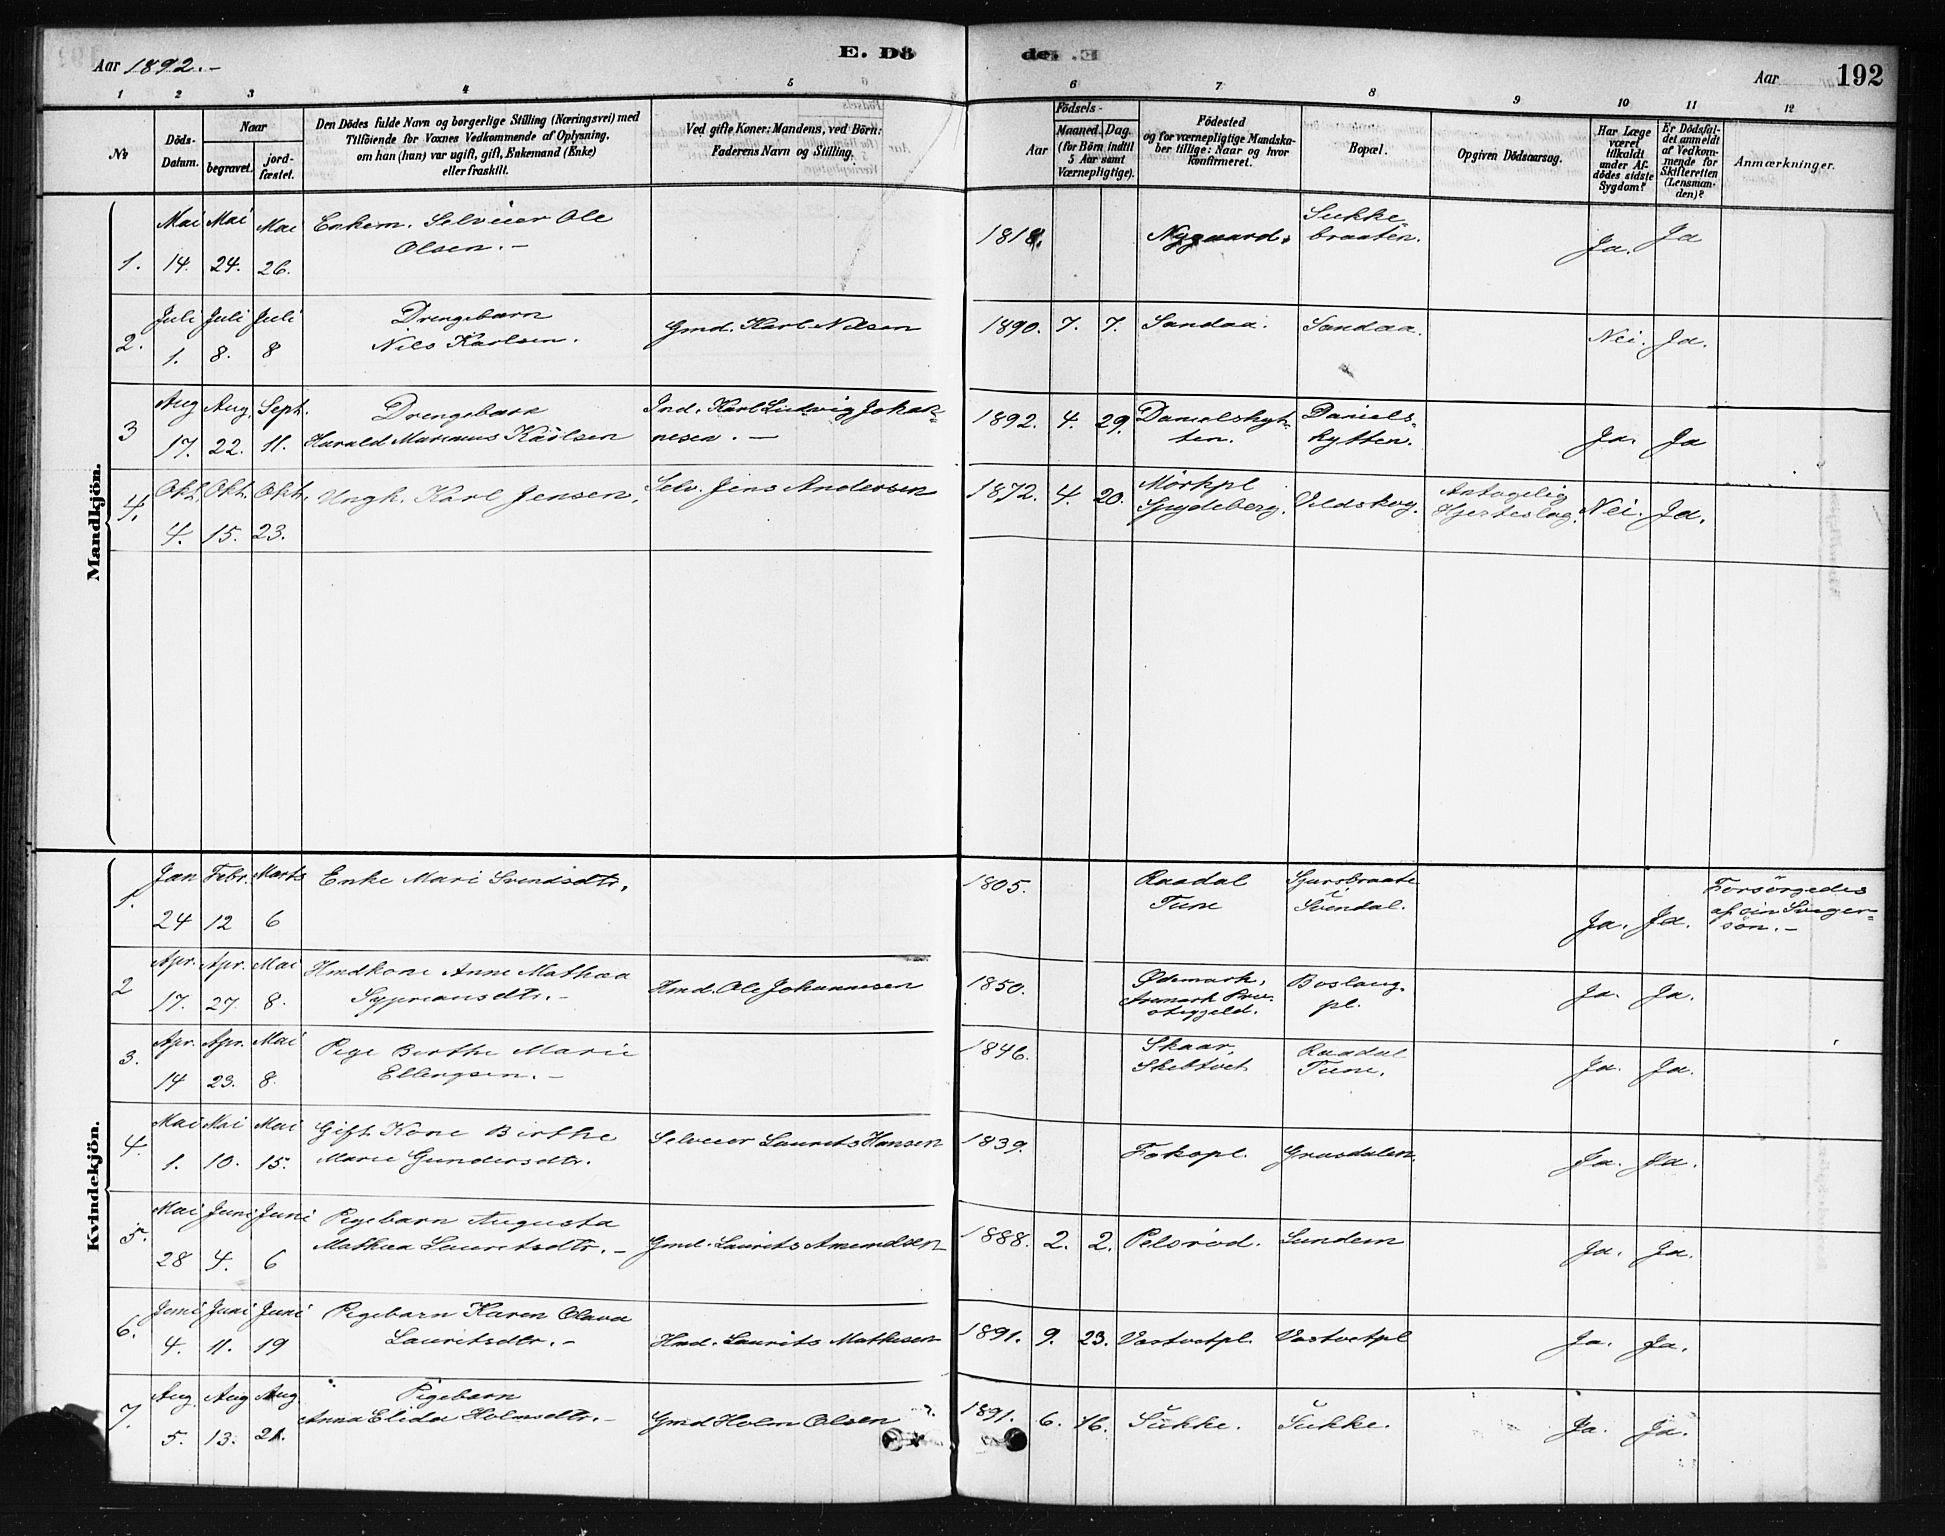 Aar 1892.-
E. Dö
de.
Aar
192
1 2 3 4 5 6 7 8 9 10 11 12
No
Döds-
Datum.
Naar
begravet.
jord-
fæstet.
Den Dödes fulde Navn og borgerlige Stilling (Næringsvei) med
Tilföiende for Voxnes Vedkommende af Oplysning,
om han (hun) var ugift, gift, Enkemand (Enke)
eller fraskilt.
Ved gifte Koner: Mandens, ved Börn:
Faderens Navn og Stilling.
Födsels-
Aar
Maaned. Dag.
(for Börn indtil
5 Aar samt
Værnepligtige).
Födested
og for værnepligtige Mandska-
ber tillige: Naar og hvor
Konfirmeret.
Bopæl.
Opgiven Dödsaarsag.
Har Læge
været
tilkaldt
under Af-
dödes sidste
Sygdom?
Er Dödsfal-
det anmeldt
af Vedkom-
mende for
Skifteretten
(Lensman-
den)?
Anmærkninger.
Mandkjön.
1. Mai 14. Mai 24. Mai 26. Enkem. Selveier Ole
Olsen.- 1818. Nygaard. Sukke
braaten. Ja. Ja
2. Juli 1. Juli 8. Juli 8 Drengebarn
Nils Karlsen. Gmd. Karl Nilsen 1890. 7. 7. Sandaa. Sandaa. Nei. Ja.
3 Aug 17. Aug. 22. Sept. 11. Drengebarn
Harald Marinius Karlsen Ind. Karl Ludvig Johan-
nesen.- 1892. 4. 29. Danielshyt-
ten. Daniels-
hytten. Ja. Ja
4. Okt. 4. Okt. 15. Okt. 23. Ungk. Karl Jensen. Selv. Jens Andersen 1872. 4. 20. Mörkpl
Spydeberg. Vldskog. Antagelig
Hjerteslag. Nei. Ja.
Kvindekjön.
1. Jan 24 Febr. 12 Marts 6 Enke Mari Svendsdtr. 1805. Raadal
Tune Sjursbraate
i
Svindal. Ja. Ja. Forsörgedes
af sin Sviger-
sön.-
2 Apr. 17. Apr. 27. Mai 8. Hmdkone Anne Mathea
Sypriansdtr.- Hmd. Ole Johannesen 1850. Ødemark,
Præ-
stegjeld. Boslaug-
pl. Ja. Ja.
3. Apr. 14 Apr. 23. Mai 8. Pige Berthe Marie
Ellingsen.- 1846. Skaar,
Skibtvet Raadal
Tune. Ja. Ja.
4. Mai 1. Mai 10. Mai 15. Gift Kone Birthe
Marie Gundersdtr. Selveier Laurits Hansen 1839. Fokopl. Grusdalen. Ja. Ja.
5. Mai 28 Juni 4. Juni 6 Pigebarn Augusta
Mathea Lauritsdtr.- Gmd. Laurits Amundsen 1888. 2. 2. Pelsröd. Sundem Ja. Ja.
6. Juni 4. Juni 11. Juni 19 Pigebarn Karen Olava
Lauritsdtr.- Hmd. Laurits Mathisen 1891. 9. 23. Vastvetpl. Vastvetpl Ja. Ja.
7. Aug. 5. Aug 13. Aug. 21. Pigebarn
Anna Elida Holmsdtr.- Gmd Holm Olsen 1891. 6. 16. Sukke. Sukke. Ja. Ja.